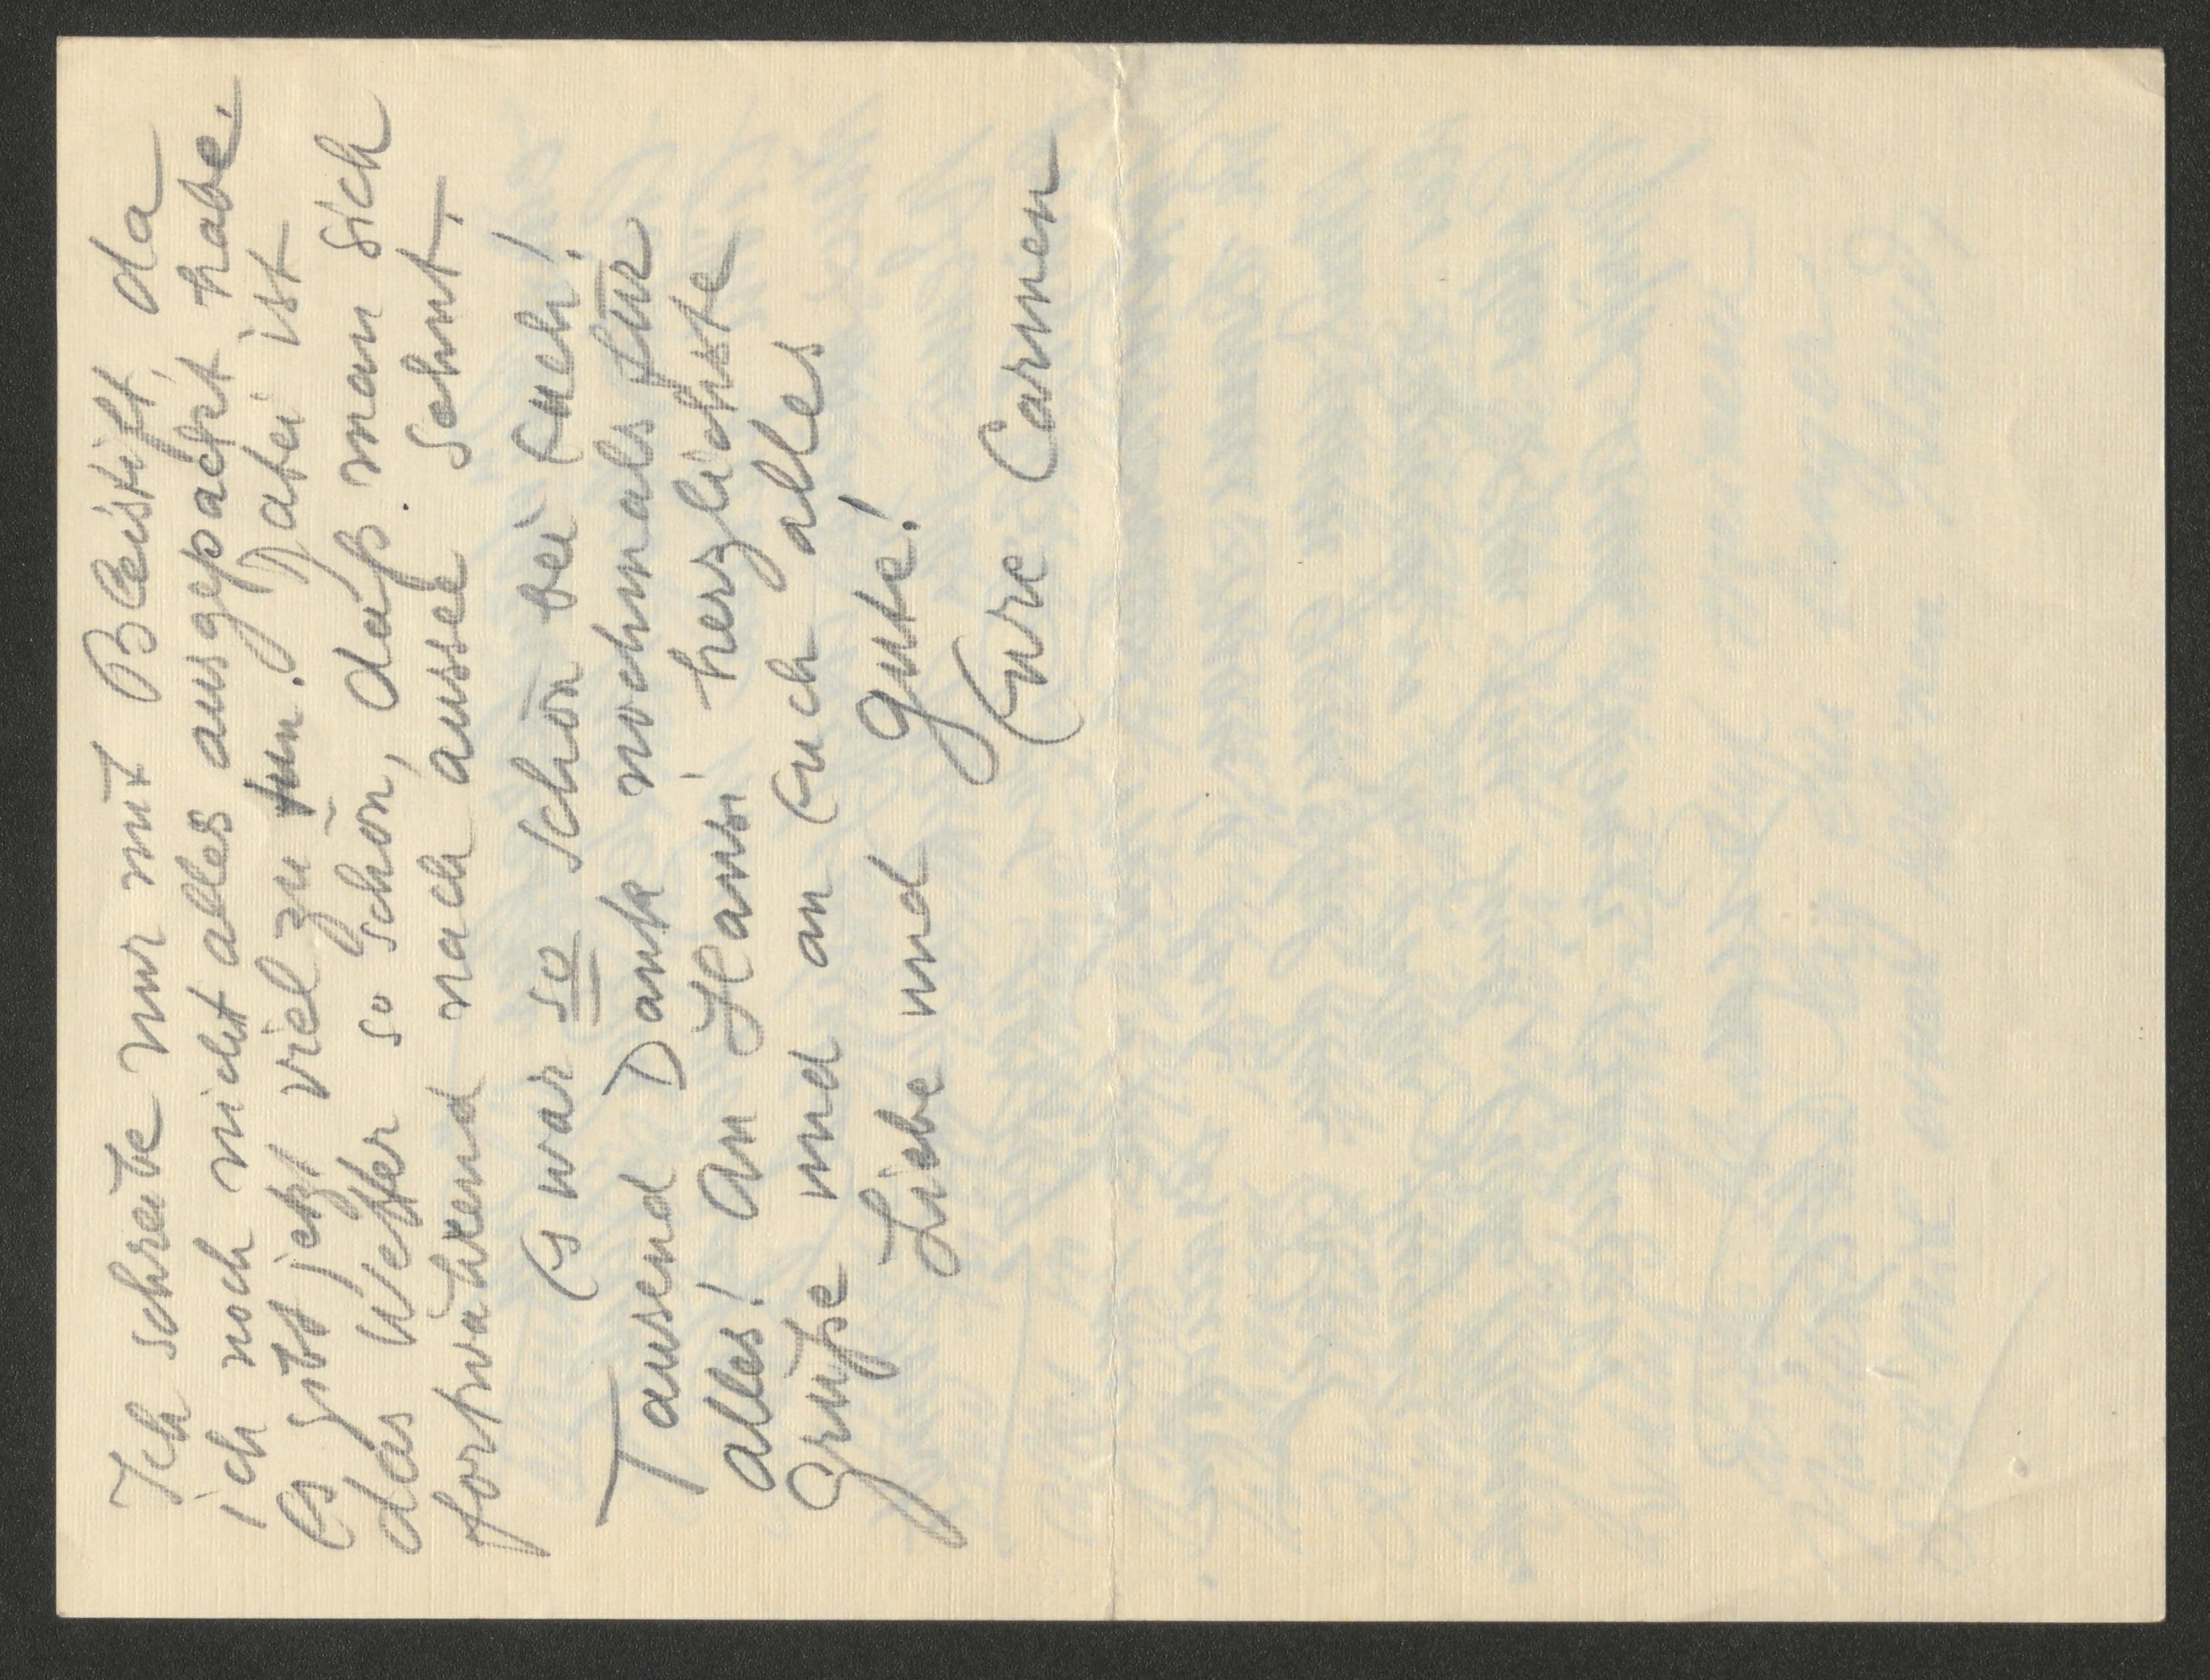 Ich schreibe nur mit Bleistift, da
ich noch nicht alles ausgepackt habe.
Es gibt jetzt viel zu tun. Dabei ist
das Wetter so schön, daß man sich
fortwährend nach aussee sehnt.
Es war so schön bei Euch!
Tausend Dank nochmals für
alles! An Hansi herzlichste
Grüße und an Euch alles
Liebe und Gute!
Eure Carmen